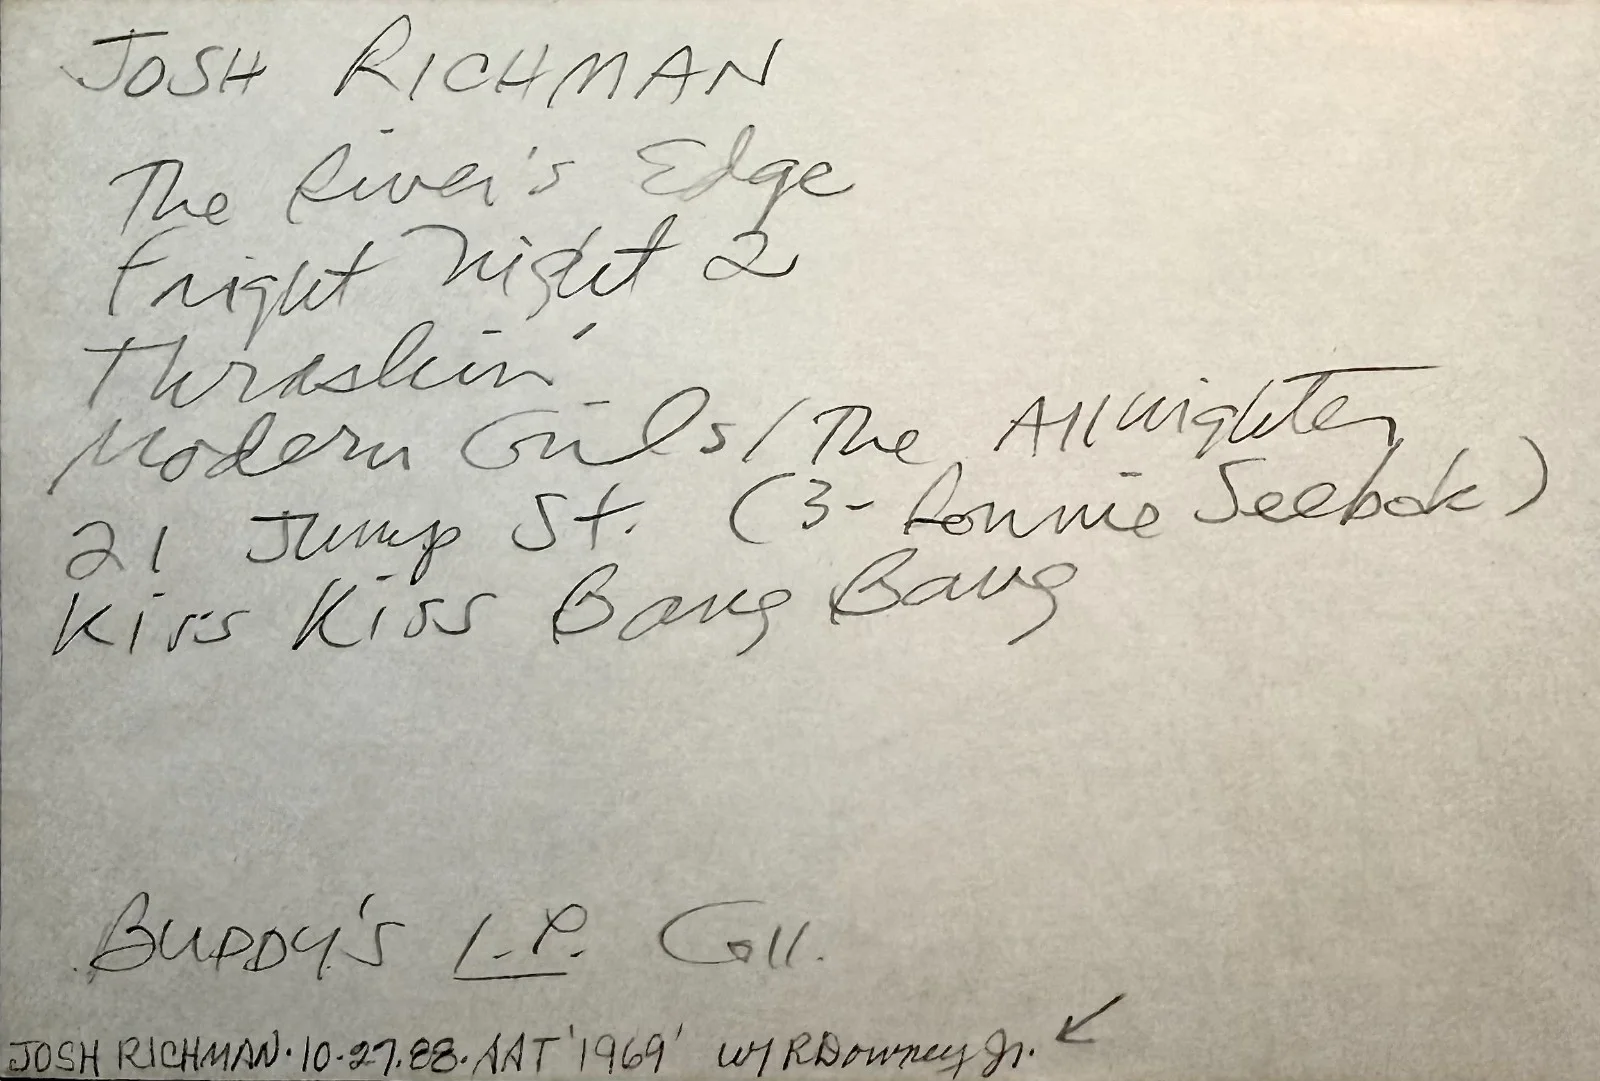 JOSH RICHMAN
The River's Edge
Fright Night 2
Thrashin'
Modern Girls / The Allnighter
21 Jump St. (3- Ronnie Seebok)
Kiss Kiss Bang Bang
BUDDY'S L.P. Coll.
JOSH RICHMAN · 10·27·88 · AAT '1969' W/ R Downey Jr. ↙